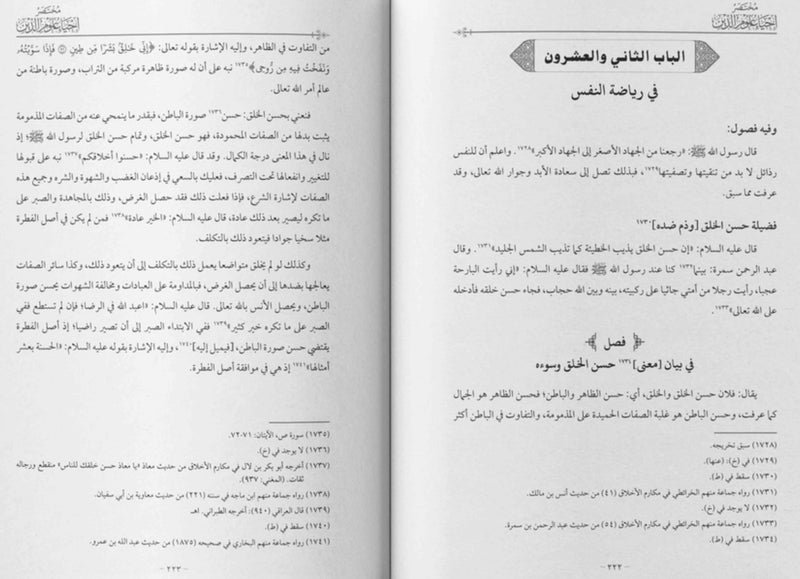 مختصر
إحياء علوم الدين
الباب الثاني والعشرون
في رياضة النفس
وفيه فصول:
قال رسول الله ﷺ: «رجعنا من الجهاد الأصغر إلى الجهاد الأكبر»١٧٢٨. واعلم أن للنفس
رذائل لا بد من تنقيتها وتصفيتها١٧٢٩، فبذلك تصل إلى سعادة الأبد وجوار الله تعالى، وقد
عرفت مما سبق.
فضيلة حسن الخلق [وذم ضده]١٧٣٠
قال عليه السلام: «إن حسن الخلق يذيب الخطيئة كما تذيب الشمس الجليد»١٧٣١. وقال
عبد الرحمن سمرة: بينما١٧٣٢ كنا عند رسول الله ﷺ فقال عليه السلام: «إني رأيت البارحة
عجبا، رأيت رجلا من أمتي جاثيا على ركبتيه، بينه وبين الله حجاب، فجاء حسن خلقه فأدخله
على الله تعالى»١٧٣٣.
فصل
في بيان [معنى]١٧٣٤ حسن الخلق وسوءه
يقال: فلان حسن الخلق والخلق، أي: حسن الظاهر والباطن؛ فحسن الظاهر هو الجمال
كما عرفت، وحسن الباطن هو غلبة الصفات الحميدة على المذمومة، والتفاوت في الباطن أكثر
(١٧٢٨) سبق تخريجه.
(١٧٢٩) في (خ): (عنها).
(١٧٣٠) سقط في (ط).
(١٧٣١) رواه جماعة منهم الخرائطي في مكارم الأخلاق (٤١) من حديث أنس بن مالك.
(١٧٣٢) لا يوجد في (خ).
(١٧٣٣) رواه جماعة منهم الخرائطي في مكارم الأخلاق (٥٤) من حديث عبد الرحمن بن سمرة.
(١٧٣٤) سقط في (ط).
٢٢٢
مختصر
إحياء علوم الدين
من التفاوت في الظاهر، وإليه الإشارة بقوله تعالى: ﴿إِنِّي خَٰلِقٌۢ بَشَرًا مِّن طِينٍ ۝ فَإِذَا سَوَّيْتُهُۥ
وَنَفَخْتُ فِيهِ مِن رُّوحِي﴾١٧٣٥ نبه على أن له صورة ظاهرة مركبة من التراب، وصورة باطنة من
عالم أمر الله تعالى.
فنعني بحسن الخلق: حسن١٧٣٦ صورة الباطن، فبقدر ما ينمحي عنه من الصفات المذمومة
يثبت بدلها من الصفات المحمودة، فهو حسن الخلق، وتمام حسن الخلق لرسول الله ﷺ؛ إذ
نال في هذا المعنى درجة الكمال. وقد قال عليه السلام: «حسنوا أخلاقكم»١٧٣٧ نبه على قبولها
للتغيير وانفعالها تحت التصرف، فعليك بالسعي في إذعان الغضب والشهوة والشره وجميع هذه
الصفات لإشارة الشرع، فإذا فعلت ذلك فقد حصل الغرض، وذلك بالمجاهدة والصبر على
ما تكره ليصير بعد ذلك عادة، قال عليه السلام: «الخير عادة»١٧٣٨ فمن لم يكن في أصل الفطرة
مثلا سخيا جوادا فيتعود ذلك بالتكلف.
وكذلك لو لم يخلق متواضعا يعمل ذلك بالتكلف إلى أن يتعود ذلك، وكذا سائر الصفات
يعالجها بضدها إلى أن يحصل الغرض، فبالمداومة على العبادات ومخالفة الشهوات يحسن صورة
الباطن، ويحصل الأنس بالله تعالى. قال عليه السلام: «اعبد الله في الرضا؛ فإن لم تستطع ففي
الصبر على ما تكره خير كثير»١٧٣٩ ففي الابتداء الصبر إلى أن تصير راضيا؛ إذ أصل الفطرة
يقتضي حسن صورة الباطن، [فيميل إليه]١٧٤٠، وإليه الإشارة بقوله عليه السلام: «الحسنة بعشر
أمثالها»١٧٤١ إذ هي في موافقة أصل الفطرة.
(١٧٣٥) سورة ص، الآيتان: ٧١-٧٢.
(١٧٣٦) لا يوجد في (خ).
(١٧٣٧) أخرجه أبو بكر بن لال في مكارم الأخلاق من حديث معاذ «يا معاذ حسن خلقك للناس» منقطع ورجاله
ثقات. (المغني: ٩٣٧).
(١٧٣٨) رواه جماعة منهم ابن ماجه في سننه (٢٢١) من حديث معاوية بن أبي سفيان.
(١٧٣٩) قال العراقي (٩٤٠): أخرجه الطبراني. اهـ
(١٧٤٠) سقط في (ط).
(١٧٤١) رواه جماعة منهم البخاري في صحيحه (١٨٧٥) من حديث عبد الله بن عمرو.
٢٢٣